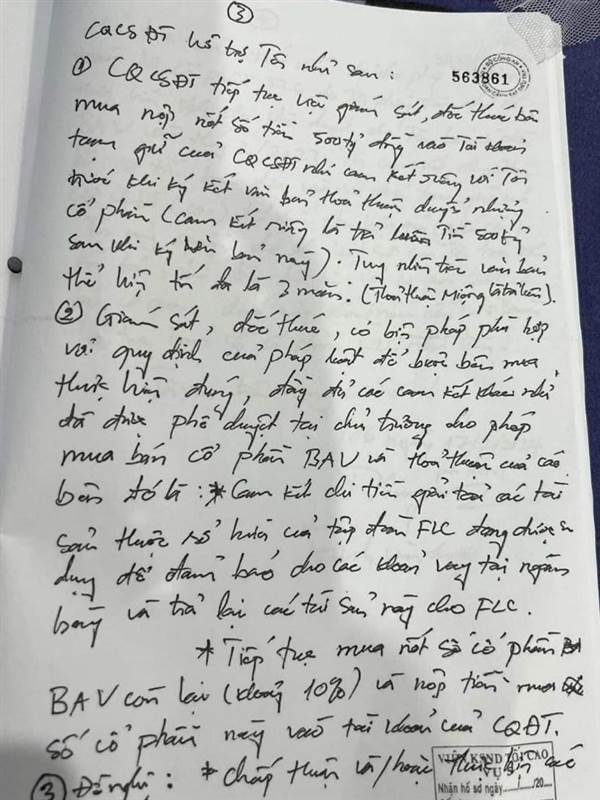 ③
CQCSĐT hỗ trợ Tôi như sau:
563861
① CQCSĐT tiếp tục việc giám sát, đốc thúc bên
mua nộp nốt số tiền 500 tỷ đồng vào Tài khoản
tạm giữ của CQCSĐT như cam kết riêng với Tôi
trước khi ký kết văn bản thoả thuận chuyển nhượng
cổ phần (cam kết riêng là trả luôn Tiền 500 tỷ
sau khi ký văn bản này). Tuy nhiên trên văn bản
thể hiện tối đa là 3 năm. (Thoả thuận Miệng là trả luôn).
② Giám sát, đốc thúc, có biện pháp phù hợp
với quy định của pháp luật để buộc bên mua
thực hiện đúng, đầy đủ các cam kết khác như
đã được phê duyệt tại chủ trương cho phép
mua bán cổ phần BAV và thoả thuận của các
bên đó là: * Cam kết chi tiền giải toả các tài
sản thuộc sở hữu của tập đoàn FLC đang được sử
dụng để đảm bảo cho các khoản vay tại ngân
hàng và trả lại các tài sản này cho FLC.
* Tiếp tục mua nốt số cổ phần
BAV còn lại (khoảng 10%) và nộp tiền mua
số cổ phần này vào tài khoản của CQĐT.
③ Đề nghị: * chấp thuận và/hoặc các
VIỆN KSND TỐI CAO
VỤ
Nhận hồ sơ ngày....../....../20....